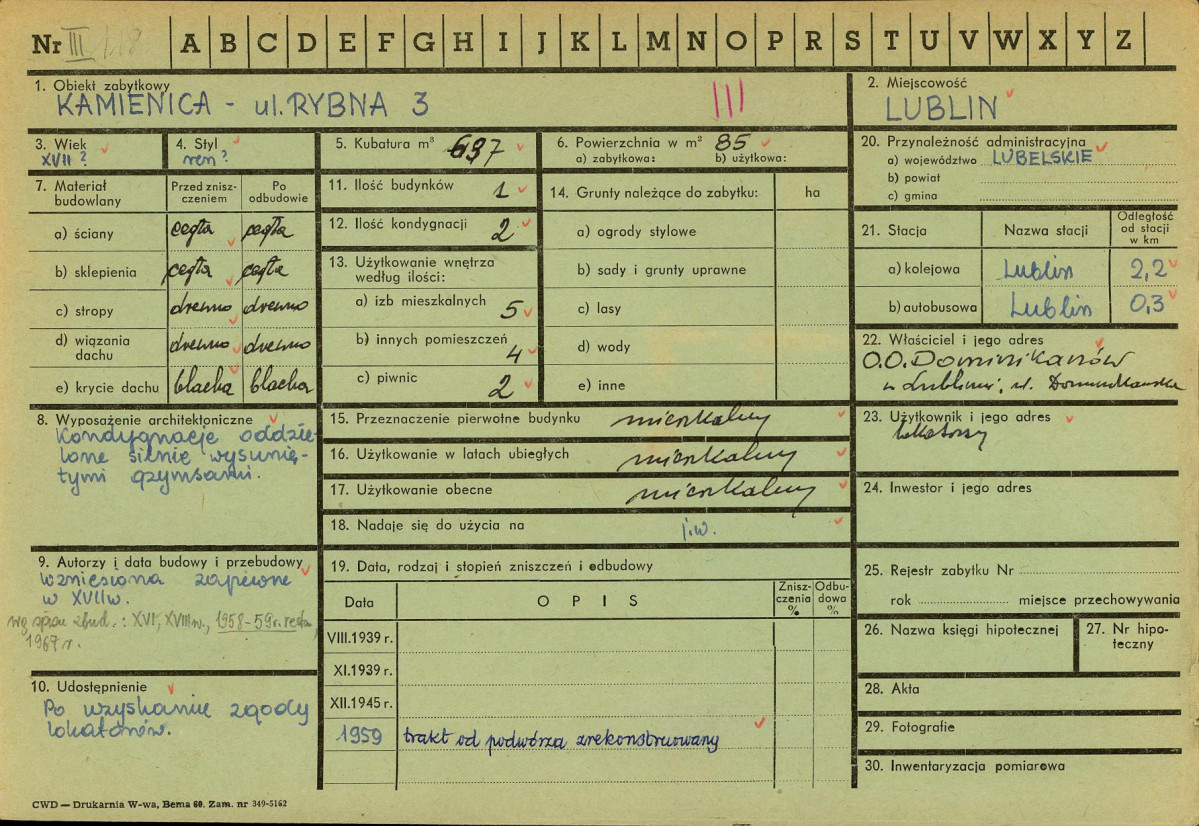 Nr III
A B C D E F G H I J K L M N O P R S T U V W X Y Z
1. Obiekt zabytkowy
KAMIENICA - ul. RYBNA 3
III
2. Miejscowość
LUBLIN
3. Wiek
XVII?
4. Styl
ren?
5. Kubatura m³ 637
6. Powierzchnia w m² 85
a) zabytkowa: b) użytkowa:
20. Przynależność administracyjna
a) województwo LUBELSKIE
b) powiat
c) gmina
7. Materiał budowlany
Przed zniszczeniem
Po odbudowie
a) ściany cegła cegła
b) sklepienia cegła cegła
c) stropy drewno drewno
d) wiązania dachu drewno drewno
e) krycie dachu blacha blacha
11. Ilość budynków 1
12. Ilość kondygnacji 2
13. Użytkowanie wnętrza według ilości:
a) izb mieszkalnych 5
b) innych pomieszczeń 4
c) piwnic 2
14. Grunty należące do zabytku: ha
a) ogrody stylowe
b) sady i grunty uprawne
c) lasy
d) wody
e) inne
21. Stacja
Nazwa stacji
Odległość od stacji w km
a) kolejowa Lublin 2,2
b) autobusowa Lublin 0,3
22. Właściciel i jego adres
O.O. Dominikanów
w Lublinie, ul. Dominikańska
8. Wyposażenie architektoniczne
Kondygnacje oddzie-
lone silnie wysunię-
tymi gzymsami.
15. Przeznaczenie pierwotne budynku mieszkalny
16. Użytkowanie w latach ubiegłych mieszkalny
17. Użytkowanie obecne mieszkalny
18. Nadaje się do użycia na j.w.
23. Użytkownik i jego adres
lokatorzy
24. Inwestor i jego adres
9. Autorzy i data budowy i przebudowy
Wzniesiona zapewne
w XVII w.
wg spisu zbud.: XVI, XVIII w., 1958-59 r.
1967 r.
10. Udostępnienie
Po uzyskaniu zgody
lokatorów.
19. Data, rodzaj i stopień zniszczeń i odbudowy
Data
OPIS
Zniszczenia %
Odbudowa %
VIII.1939 r.
XI.1939 r.
XII.1945 r.
1959 trakt od podwórza zrekonstruowany
25. Rejestr zabytku Nr
rok miejsce przechowywania
26. Nazwa księgi hipotecznej
27. Nr hipoteczny
28. Akta
29. Fotografie
30. Inwentaryzacja pomiarowa
CWD — Drukarnia W-wa, Bema 60. Zam. nr 349-5162